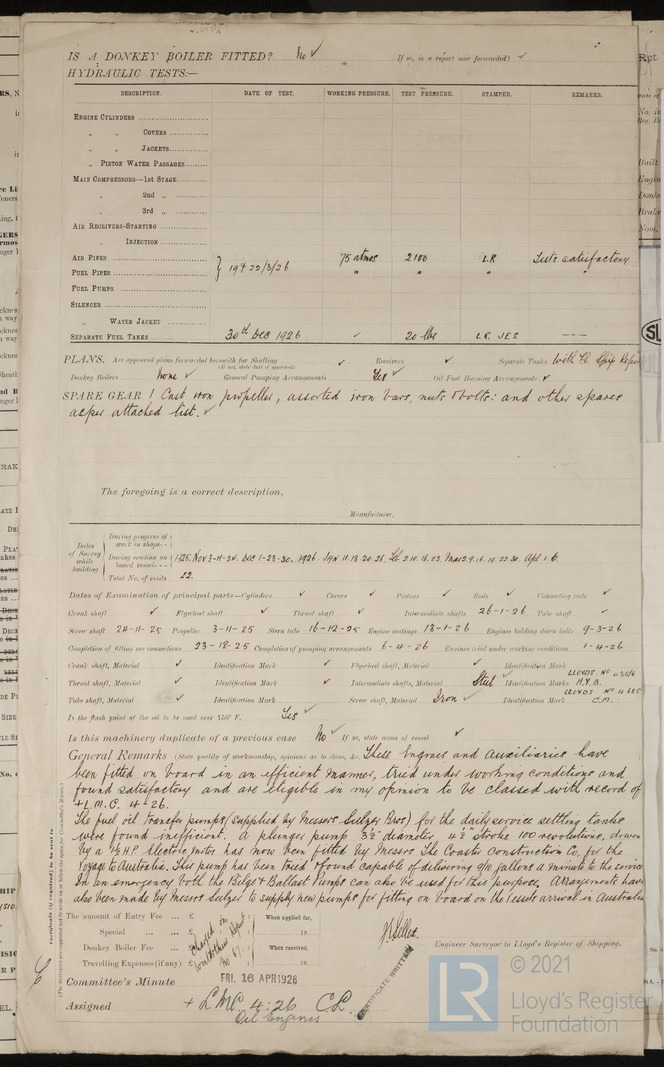 IS A DONKEY BOILER FITTED? No ✓ If so, is a report now forwarded? ✓
HYDRAULIC TESTS:—
DESCRIPTION. DATE OF TEST. WORKING PRESSURE. TEST PRESSURE. STAMPED. REMARKS.
ENGINE CYLINDERS
" " COVERS
" " JACKETS
" PISTON WATER PASSAGES
MAIN COMPRESSORS—1st STAGE
" 2nd "
" 3rd "
AIR RECEIVERS—STARTING
" INJECTION
AIR PIPES 19 & 22/3/26 75 atmos 2100 LR Tests satisfactory
FUEL PIPES " " " "
FUEL PUMPS
SILENCER
" WATER JACKET
SEPARATE FUEL TANKS 30th Dec 1926 ✓ 20 lbs LR. JES. — — —
PLANS. Are approved plans forwarded herewith for Shafting ✓ Receivers ✓ Separate Tanks With Lb. Ship Repor
(If not, state date of approval)
Donkey Boilers None ✓ General Pumping Arrangements Yes ✓ Oil Fuel Burning Arrangements ✓
SPARE GEAR 1 Cast iron propeller, assorted iron bars, nuts & bolts: and other spares
as per attached list. ✓
The foregoing is a correct description,
Manufacturer.
Dates of Survey while building
During progress of work in shops - -
During erection on board vessel - - - 1925. Nov 3-11-24. Dec 1-23-30. 1926. Jan 11.13.20.26. Feb 2.10.16.23. Mar 2.9.16.19.22.30. Apl 1.6.
Total No. of visits 22.
Dates of Examination of principal parts—Cylinders ✓ Covers ✓ Pistons ✓ Rods ✓ Connecting rods ✓
Crank shaft ✓ Flywheel shaft ✓ Thrust shaft ✓ Intermediate shafts 26-1-26 Tube shaft ✓
Screw shaft 24-11-25 Propeller 3-11-25 Stern tube 16-12-25 Engine seatings 13-1-26 Engines holding down bolts 9-3-26
Completion of fitting sea connections 23-12-25 Completion of pumping arrangements 6-4-26 Engines tried under working conditions 1-4-26
Crank shaft, Material ✓ Identification Mark ✓ Flywheel shaft, Material ✓ Identification Mark ✓
Thrust shaft, Material ✓ Identification Mark ✓ Intermediate shafts, Material Steel Identification Marks LLOYDS No 4356 H.Y.B.
Tube shaft, Material ✓ Identification Mark ✓ Screw shaft, Material Iron Identification Mark LLOYDS No 4685 C.M.
Is the flash point of the oil to be used over 150° F. Yes ✓
Is this machinery duplicate of a previous case No ✓ If so, state name of vessel ✓
General Remarks (State quality of workmanship, opinions as to class, &c. These Engines and Auxiliaries have
been fitted on board in an efficient manner, tried under working conditions and
found satisfactory and are eligible in my opinion to be classed with record of
+L.M.C. 4-26.
The fuel oil transfer pumps (supplied by Messrs Sulzer Bros) for the daily service settling tanks
were found inefficient. A plunger pump 3½" diameter, 4½" stroke 100 revolutions, driven
by a ½ H.P. electric motor has now been fitted by Messrs The Coaster Construction Co, for the
voyage to Australia. This pump has been tried & found capable of delivering 9/10 gallons a minute to the service
In an emergency both the Bilge & Ballast Pumps can also be used for this purpose. Arrangements have
also been made by Messrs Sulzer to supply new pumps for fitting on board on the vessels arrival in Australia
The amount of Entry Fee ... £ When applied for,
Special ... ... £ 19
Donkey Boiler Fee ... £ When received,
Travelling Expenses (if any) £ 19
Engineer Surveyor to Lloyd's Register of Shipping.
Committee's Minute FRI. 16 APR 1926
Assigned + LMC 4.26 C.L.
Oil Engines
CERTIFICATE WRITTEN
LR
© 2021
Lloyd's Register
Foundation